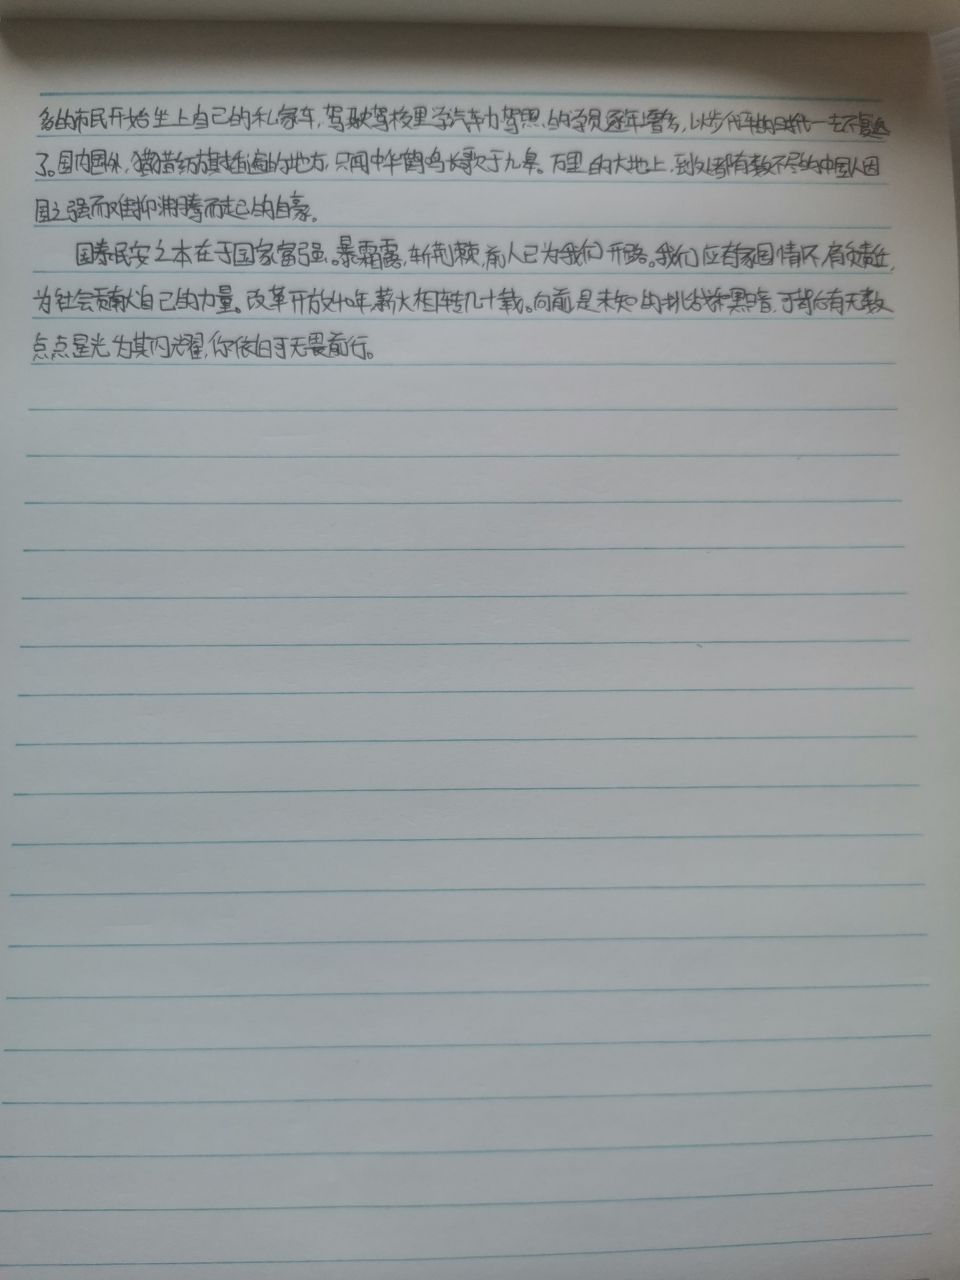 多的市民开始坐上自己的私家车,驾驶驾校里学汽车力驾照的学员逐年增多,以步代车的时代一去不复返
了。国内国外,猎猎红旗插遍的地方,只闻中华鹤鸣长歌于九皋。万里的大地上,到处都有数不尽的中国人因
国之强而难抑沸腾而起的自豪。
国泰民安之本在于国家富强。暴霜露,斩荆棘,前人已为我们开路。我们应有家国情怀,肩负责任,
为社会贡献自己的力量。改革开放四十年,薪火相转几十载。向前是未知的挑战和黑暗,可背后有无数
点点星光为其闪耀,你依旧可无畏前行。